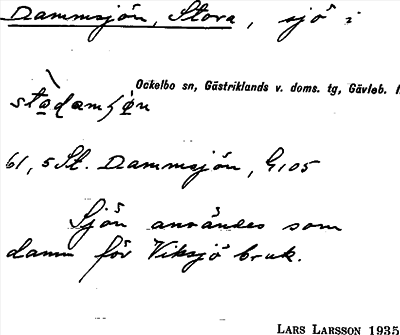 Dammsjön, Stora, sjö i
Ockelbo sn, Gästriklands v. doms. tg, Gävleb.
61, 5 St. Dammsjön, G105
Sjön användes som
damm för Viksjö bruk.
LARS LARSSON 1935